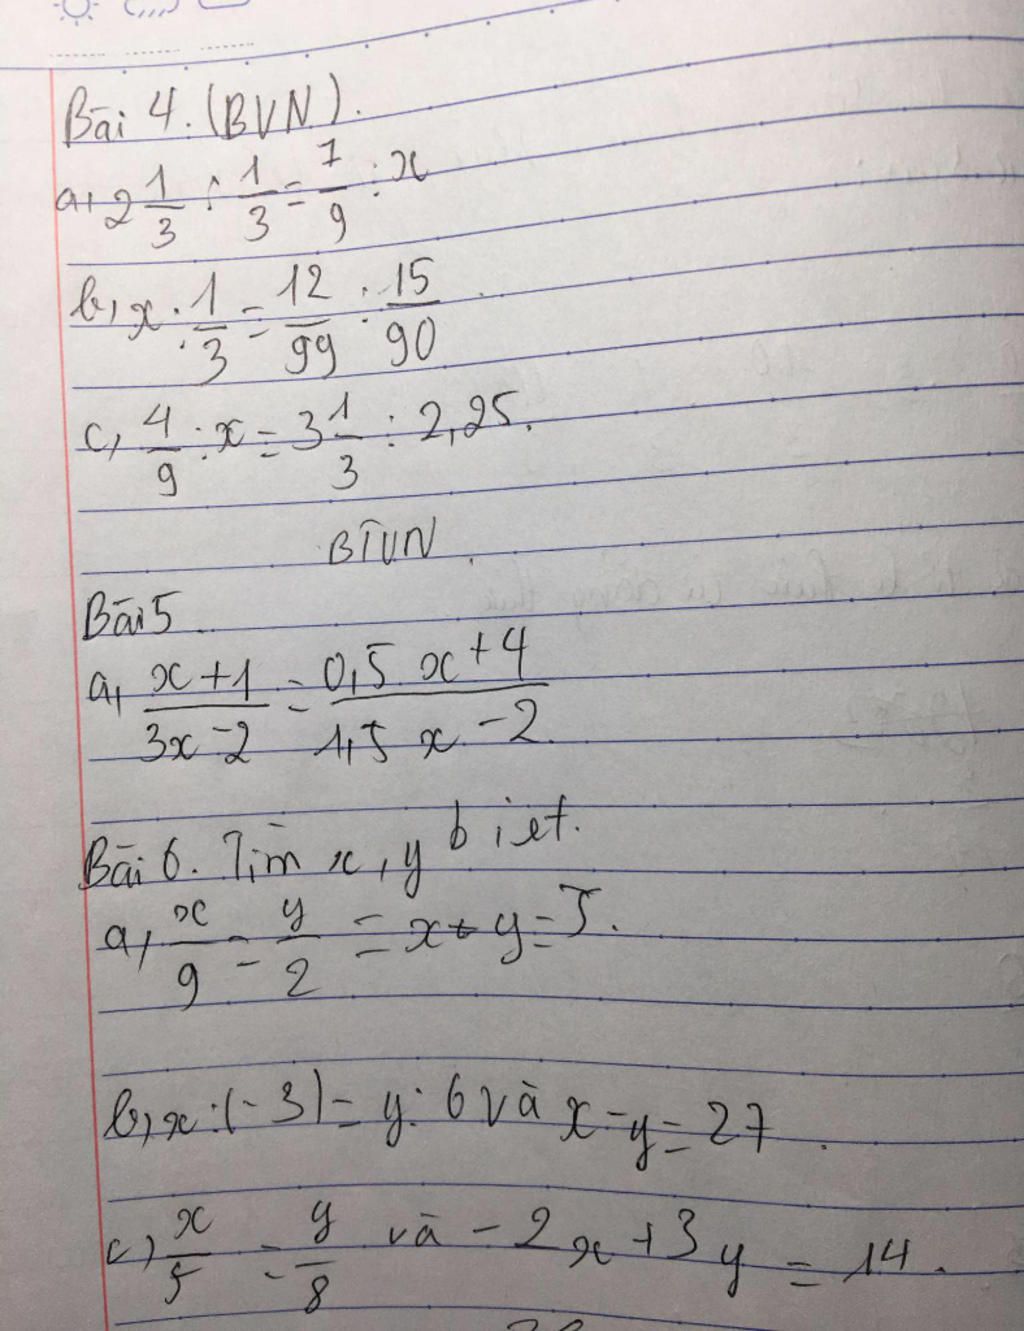 Bài 4. (BVN).
a, 2 1/3 : 1/3 = 7/9 : x
b, x : 1/3 = 12/99 : 15/90
c, 4/9 : x = 3 1/3 : 2,25.
BTVN
Bài 5
a, (x+1)/(3x-2) = (0,5x+4)/(1,5x-2)
Bài 6. Tìm x, y biet.
a, x/9 = y/2 = x+y=5.
b, x:(-3) = y:6 và x-y=27
c) x/5 = y/8 và -2x+3y = 14.